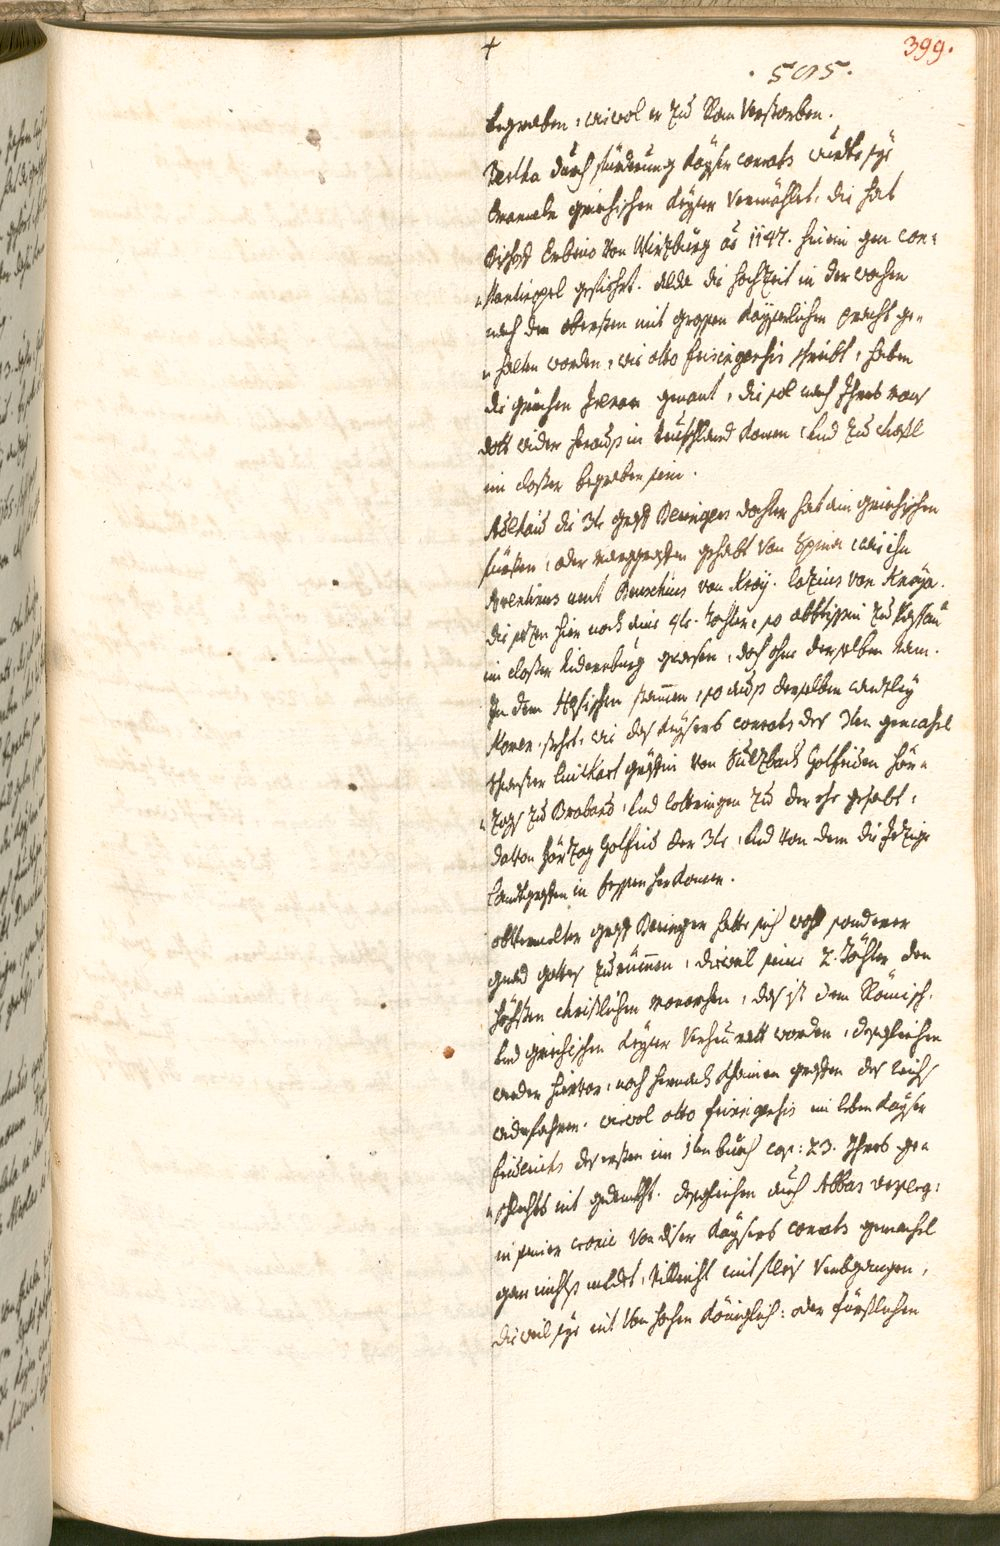 +
399.
. 505.
begraben, wiewol er zu Rom Verstorben.
Bertha durch fürderung Kayser conrats wurde sye
Emanueln griechischen Kayser Vermählet, die hat
Bischoff Embrico Von Wirtzburg ao 1147. hinein gen Con=
stantinopel gefiehrt. alda die hochzeit in der wochen
nach dem obersten mit grossen Kayserlichen pracht ge=
halten worden, wie otto frisingensis schreibt, haben
die griechen Irenen genant, die sol nach Ihres man
dott wider herauß in teutschland Komen Und zu
im closter begraben sein.
Adelhaid die 3te graff Beringers dochter hat ain griechischen
fürsten, oder marggrafen gehabt Von wie ihn
Aventinus nent Bruschius von Kroy. lazius von Kroya.
die setzen hier noch eine 4te. tochter, so abbtissin zu Passau
im closter Nidernburg gewesen, doch ohne derselben nam.
In dem Heßischen stammen, so auß derselben cantzley
Komen, stehet, wie des Kaysers conrats des 3ten gemachel
schwester Luitkart gräffin von Sultzbach Golfriden Hör=
zogs zu Brabant, Und lottringen zu der ehe gehabt,
davon Hörzog Golfrid der 3te, Und von dem die Jezige
Landtgrafen in hessen her Komen.
obVermelter graff Beringer hatte sich wohl sonderer
gnad gottes zu rümmen, diewil seine 2. töchter den
höchsten christlichen monarchen, das ist dem Römisch.
Und griechischen Kayser Verheuratt worden, desgleichen
weder hievor, noch hernach Khainen grafen des reichs
widerfahren. wiewol otto frisingensis im leben Kayser
friderichs des ersten im 1ten buch cap: 23. Ihres ge=
schlechts nit gedenckht. desgleichen auch Abbas ursperg:
in seiner cronic Von diser Kaysers conrats gemachel
gar nichtß meldet, Villeicht mit fleis Umbgangen,
dieweil sye nit Von hohen Königlich: oder fürstlichen